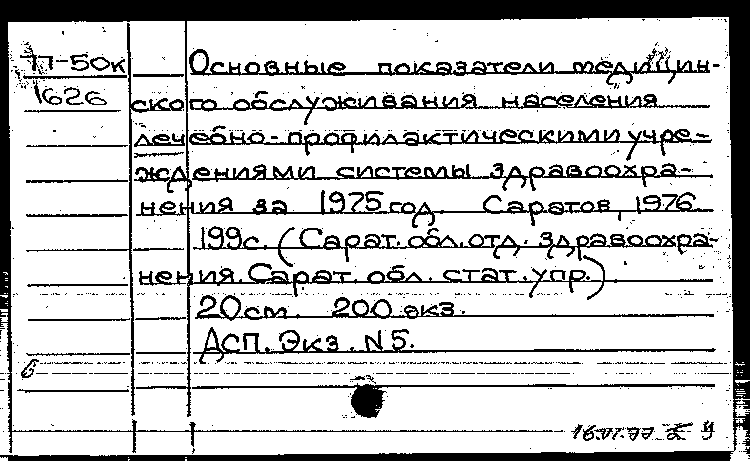 П-50к Основные показатели медицин-
1626 ского обслуживания населения
лечебно-профилактическими учре-
ждениями системы здравоохра-
нения за 1975 год. Саратов, 1976.
199с. (Сарат. обл. отд. здравоохра-
нения. Сарат. обл. стат. упр.).
20см. 200 экз.
ДСП. Экз. N5.
б